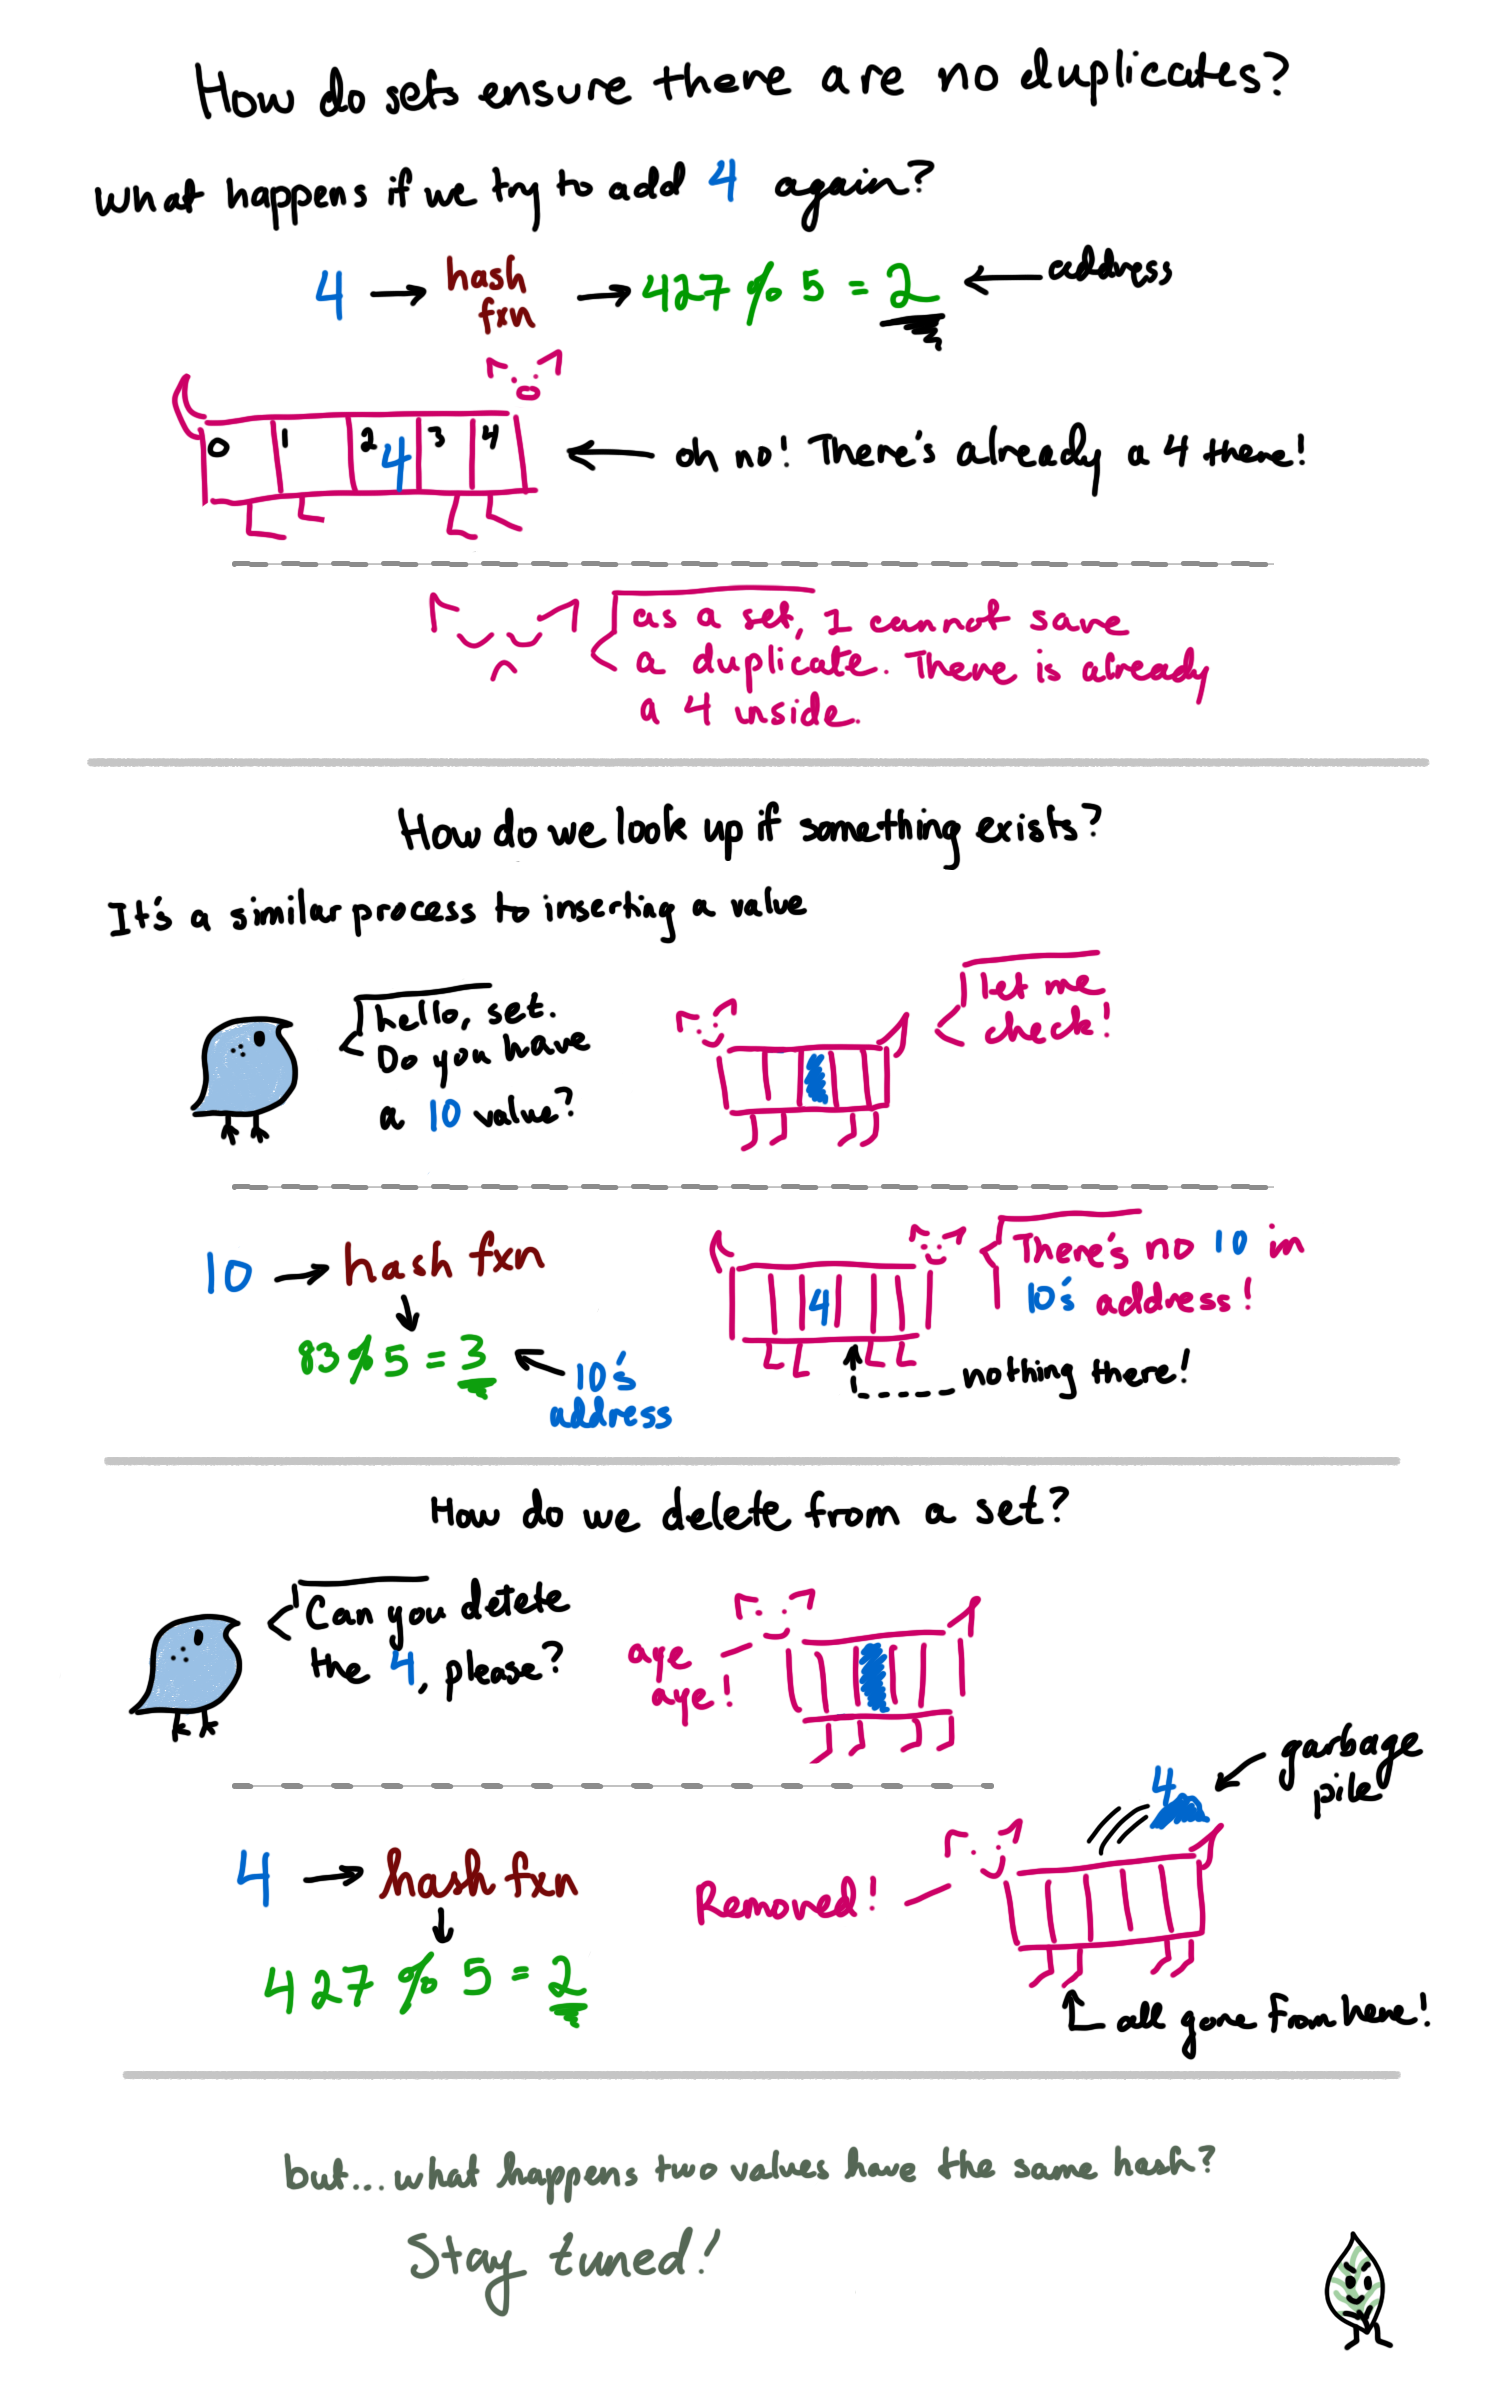 How do sets ensure there are no duplicates?
What happens if we try to add 4 again?
4 → hash fxn → 427 % 5 = 2 ← address
0 1 2 4 3 4
← oh no! There's already a 4 there!
as a set, I cannot save
a duplicate. There is already
a 4 inside.
How do we look up if something exists?
It's a similar process to inserting a value
hello, set.
Do you have
a 10 value?
let me
check!
10 → hash fxn
↓
83 % 5 = 3 ← 10's
address
There's no 10 in
10's address!
4
nothing there!
How do we delete from a set?
Can you delete
the 4, please?
aye
aye!
4 → hash fxn
↓
427 % 5 = 2
4
garbage
pile
Removed!
all gone from here!
but... what happens two values have the same hash?
Stay tuned!